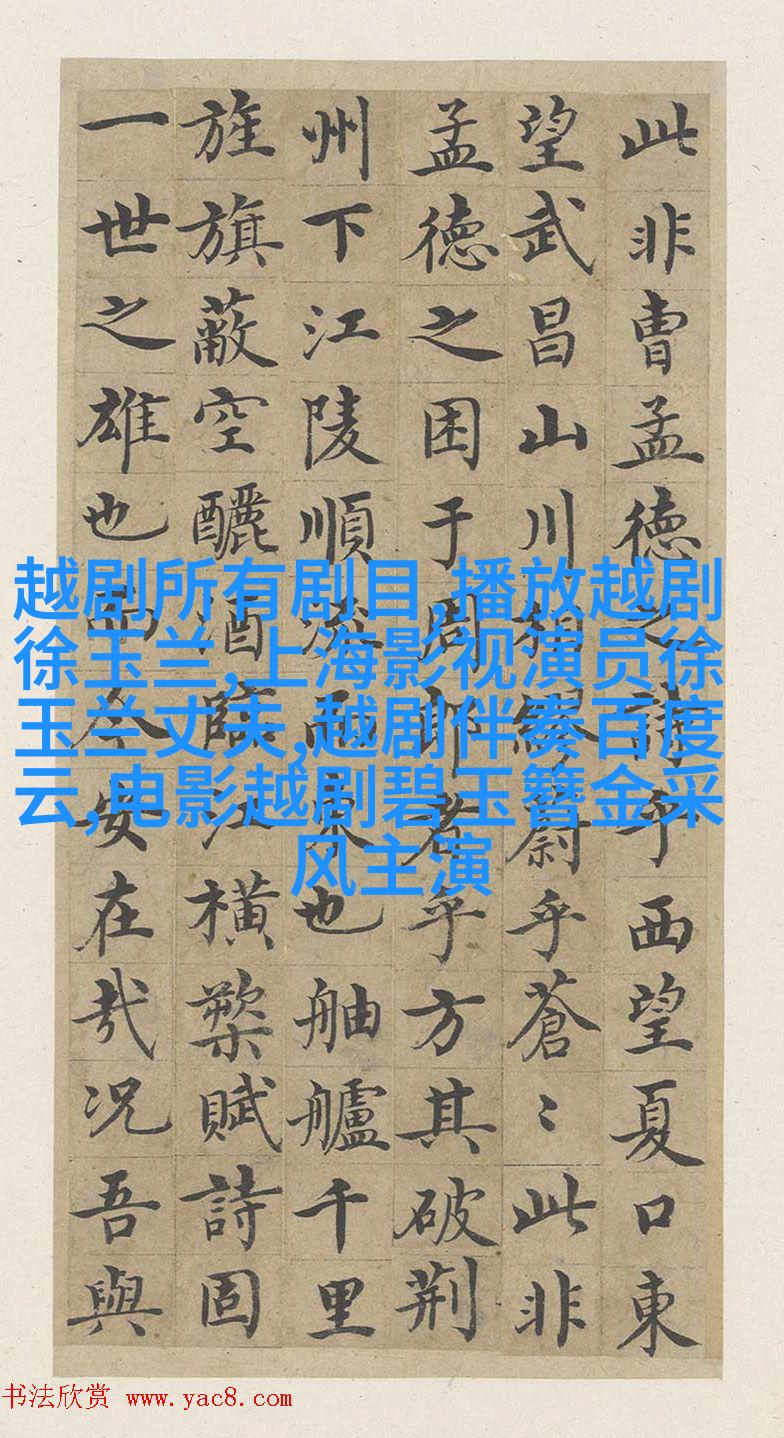 此非曹孟德之詩乎西望夏口東
望武昌山川相繆蔚乎蒼〻此非
孟德之困于周郎者乎方其破荆
州下江陵順流而東也舳艫千里
旌旗蔽空釃酒臨江橫槊賦詩固
一世之雄也而今安在哉况吾與
越剧所有剧目,播放越剧
徐玉兰,上海影视演员徐
玉兰丈夫,越剧伴奏百度
云,电影越剧碧玉簪金采
风主演
书法欣赏 www.yac8.com